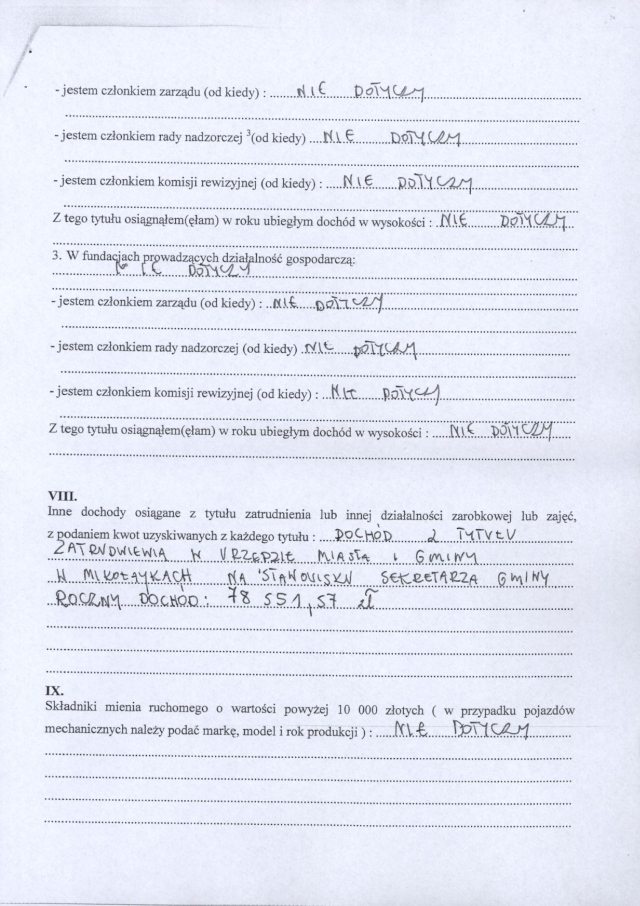 - jestem członkiem zarządu (od kiedy) : NIE DOTYCZY
- jestem członkiem rady nadzorczej ³(od kiedy) NIE DOTYCZY
- jestem członkiem komisji rewizyjnej (od kiedy) : NIE DOTYCZY
Z tego tytułu osiągnąłem(ęłam) w roku ubiegłym dochód w wysokości : NIE DOTYCZY
3. W fundacjach prowadzących działalność gospodarczą:
NIE DOTYCZY
- jestem członkiem zarządu (od kiedy) : NIE DOTYCZY
- jestem członkiem rady nadzorczej (od kiedy) NIE DOTYCZY
- jestem członkiem komisji rewizyjnej (od kiedy) : NIE DOTYCZY
Z tego tytułu osiągnąłem(ęłam) w roku ubiegłym dochód w wysokości : NIE DOTYCZY
VIII.
Inne dochody osiągane z tytułu zatrudnienia lub innej działalności zarobkowej lub zajęć,
z podaniem kwot uzyskiwanych z każdego tytułu : DOCHÓD Z TYTUŁU
ZATRUDNIENIA W URZĘDZIE MIASTA I GMINY
W MIKOŁAJKACH NA STANOWISKU SEKRETARZA GMINY
ROCZNY DOCHÓD: 78 551,57 zł
IX.
Składniki mienia ruchomego o wartości powyżej 10 000 złotych ( w przypadku pojazdów
mechanicznych należy podać markę, model i rok produkcji ) : NIE DOTYCZY